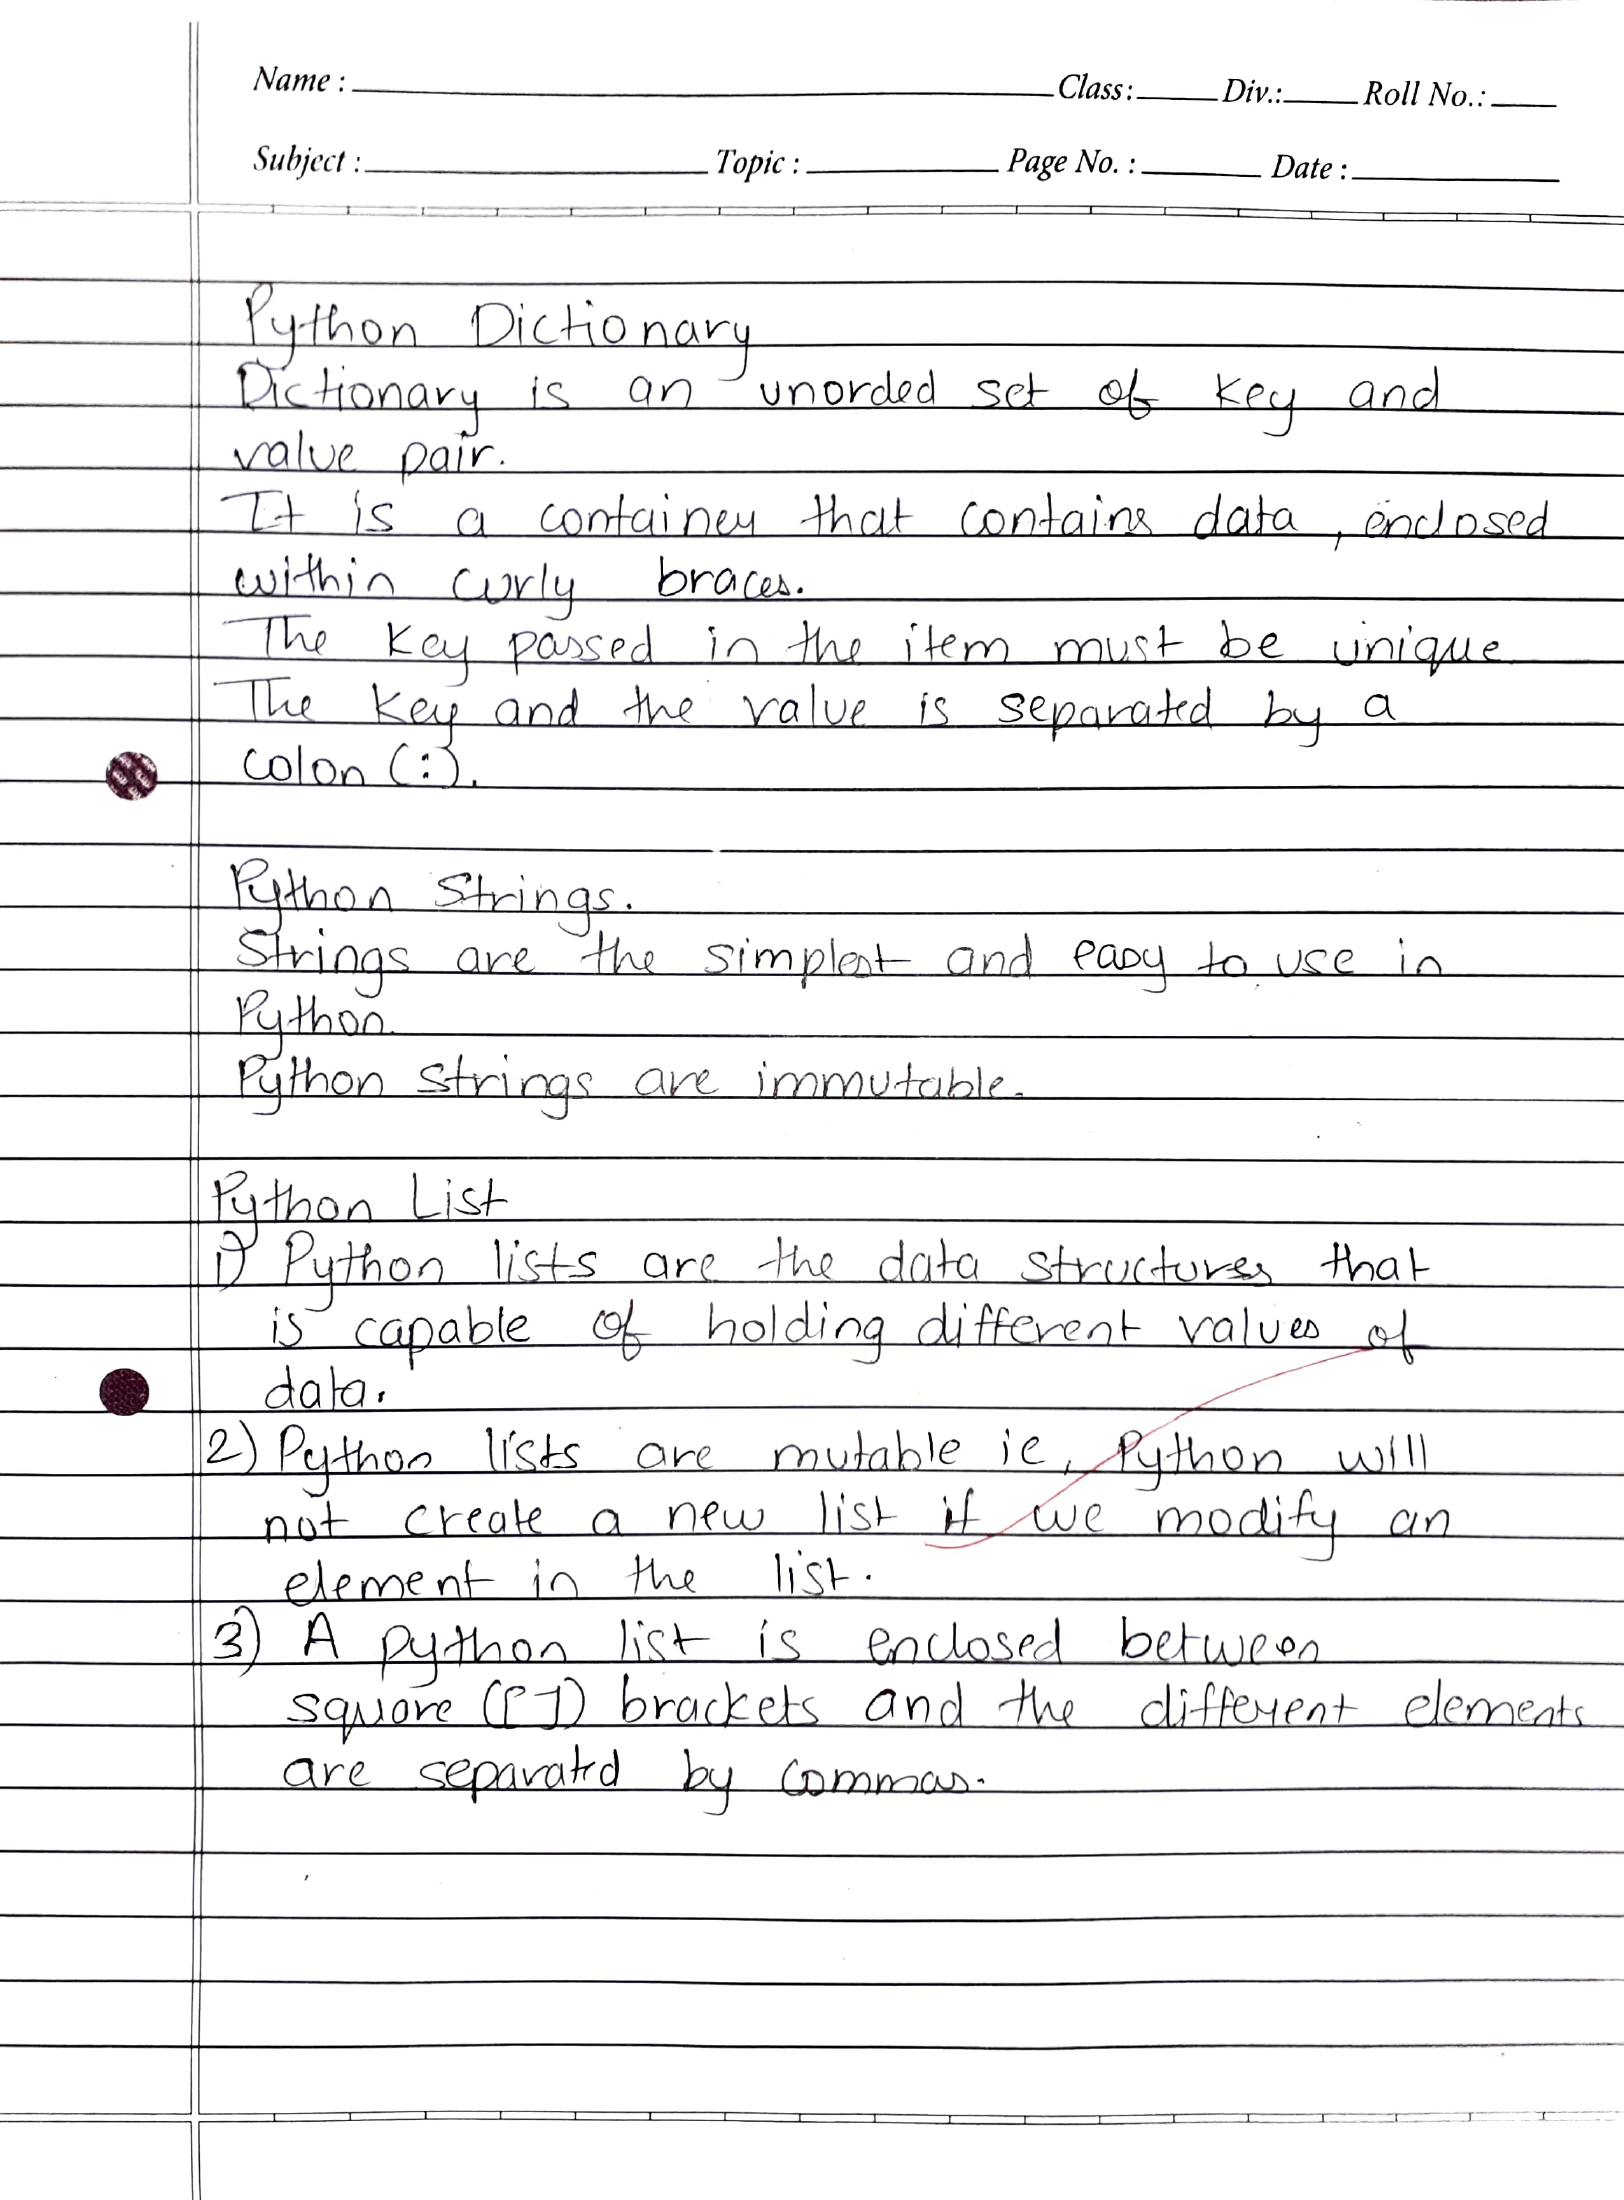 Name : Class: Div.: Roll No.:
Subject : Topic : Page No. : Date :
Python Dictionary
Dictionary is an unorded set of key and
value pair.
It is a container that contains data, enclosed
within curly braces.
The key passed in the item must be unique
The key and the value is separated by a
colon (:).
Python Strings.
Strings are the simplest and easy to use in
Python.
Python strings are immutable.
Python List
1) Python lists are the data structures that
is capable of holding different values of
data.
2) Python lists are mutable ie, Python will
not create a new list if we modify an
element in the list.
3) A python list is enclosed between
square ([ ]) brackets and the different elements
are separated by commas.